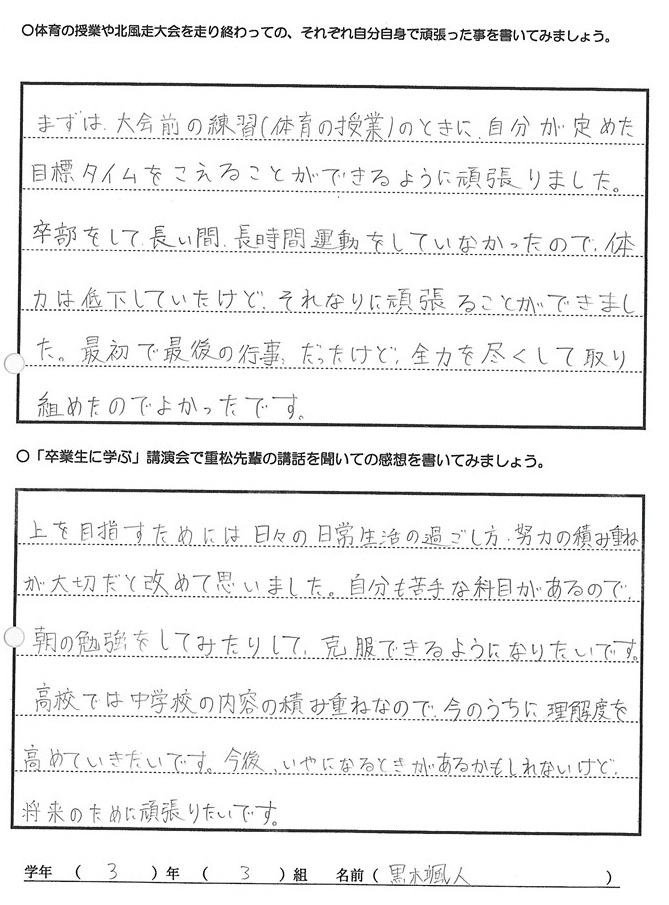 〇体育の授業や北風走大会を走り終わっての、それぞれ自分自身で頑張った事を書いてみましょう。
まずは、大会前の練習(体育の授業)のときに、自分が定めた
目標タイムをこえることができるように頑張りました。
卒部をして、長い間、長時間運動をしていなかったので、体
力は低下していたけど、それなりに頑張ることができまし
た。最初で最後の行事、だったけど、全力を尽くして取り
組めたのでよかったです。
〇「卒業生に学ぶ」講演会で重松先輩の講話を聞いての感想を書いてみましょう。
上を目指すためには日々の日常生活の過ごし方、努力の積み重ね
が大切だと改めて思いました。自分も苦手な科目があるので、
朝の勉強をしてみたりして、克服できるようになりたいです。
高校では中学校の内容の積み重ねなので、今のうちに理解度を
高めていきたいです。今後、いやになるときがあるかもしれないけど、
将来のために頑張りたいです。
学年 ( 3 ) 年 ( 3 ) 組 名前 ( 黒木颯人 )